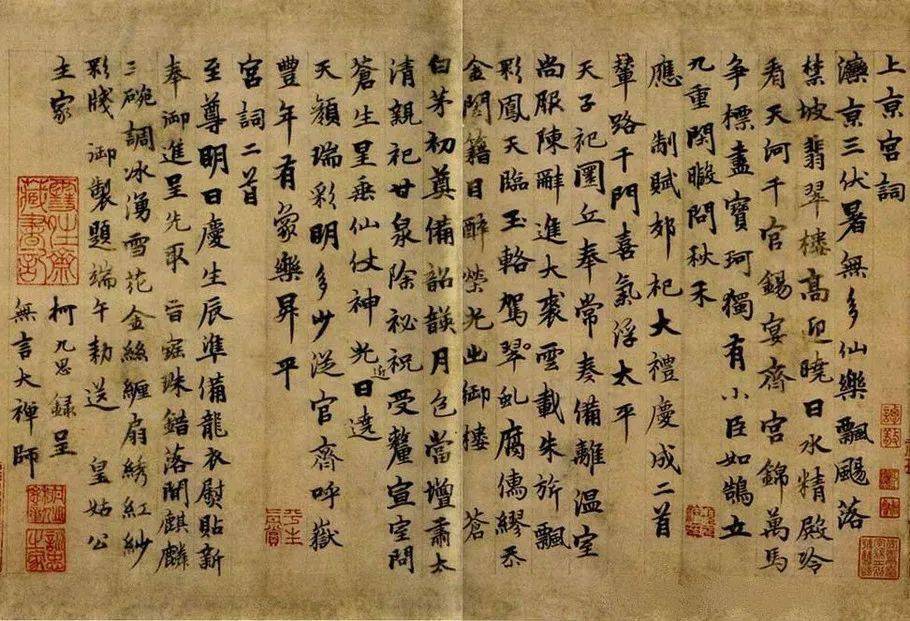 上京宮詞
灤京三伏暑無多仙樂飄颺落
禁坡翡翠樓高迎曉日水精殿冷
看天河千官錫宴齋宮錦萬馬
爭標盡寶珂獨有小臣如鵠立
九重閑暇問秋禾
應制賦郊祀大禮慶成二首
輦路千門喜氣浮太平
天子祀圜丘奉常奏備離溫室
尚服陳辭進大裘雲載朱旂飄
彩鳳天臨玉輅駕翠虬腐儒繆忝
金閨籍目醉榮光出御樓 蒼
白茅初奠備韶韺月色當壇肅太
清親祀甘泉除祕祝受釐宣室問
蒼生星垂仙仗神光近日達
天顏瑞彩明多少從官齊呼嶽
豐年有象樂昇平
宮詞二首
至尊明日慶生辰準備龍衣熨貼新
奉御進呈先取旨寶珠錯落間麒麟
三碗調冰湧雪花金絲纏扇綉紅紗
彩牋御製題端午勑送皇姑公
主家
柯九思錄呈
無言大禪師